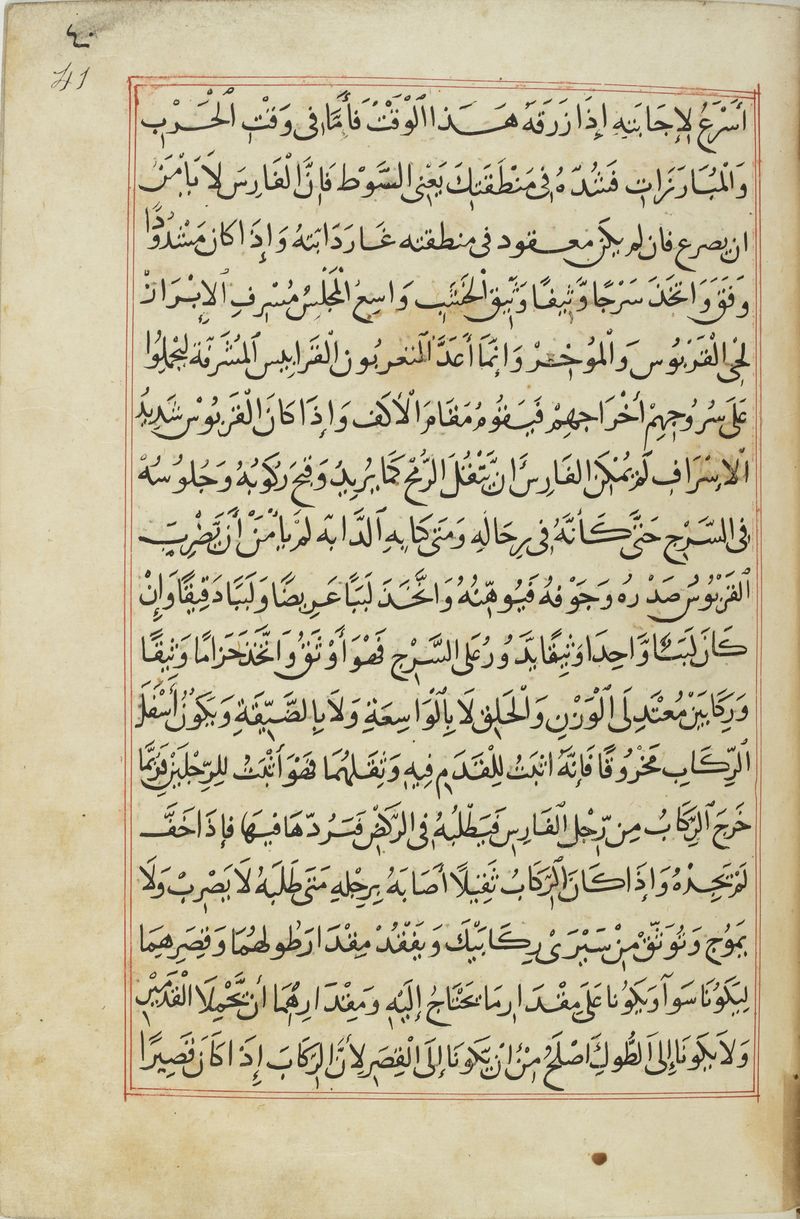 ٤٠
41
أَسْرَعُ لِإِجَابَتِهِ إِذَا زَرَقَهُ هَذَا الْوَقْتُ فَأَمَّا فِى وَقْتِ الْحَرْبِ
وَالْمُبَارَزَاتِ فَشُدَّهُ فِى مَنْطَقَتِكَ يَعْنِى السَّوْطَ فَإِنَّ الْفَارِسَ لَا يَأْمَنُ
ان يصرع فان لم يكن معقود فى منطقته غار دَابَتهُ وَإِذَا كان مَشْدُودًا
وَقَفَ وَاتَّخَذَ سَرْجًا وَثِيقًا وَثِيقَ الْخَشَبِ وَاسِعُ الْمَجْلِسُ مُشْرِفِ الإِبْرَازْ
الْقَرْبُوسَ وَالْمُوخِرْ وَإِنَّمَا أَعَدَّ الْمتعربُون الْقَرَابِيس الْمُشَرَّفَة لِيَحْمِلُوا
عَلَى سُرُوجِهِمْ أَخْرَاجِهِمْ فَيَقُومُ مَقَامَ الْأَكَفِ وَإِذَا كَانَ الْقَرْبُوسْ شَدِيدُ
الْاِشْرَافِ لَمْ يُمْكِن الفَارِسُ انْ يَّتْفُلَ الرُّمْحَ كَمَا يُرِيدُ وَقبحَ رَكُوبُهُ وَجُلُوسُهُ
فِى السَّرْجِ حَتَّى كَأَنَّهُ فِى رِحَالِهِ وَمَتَى كَابِهِ الدَّابَه لَمْ يَأْمَنْ أَنْ يَّضْرِبَ
القَرْبُوسُ صَدْرُه وَجَوْفهُ فَيُوهِّنُهُ وَاتَّخَذَ لَبَبًا عَرِيضًا وَلَبَبًا دَقِيقًا وَإِنْ
كَانَ لَبَبًا وَّاحِدًا وَثِيقًا يَدَّوُرُ عَلَى السَّرْجِ فَهْوَ أَوْثَقُ وَاتَّخَذَ حَزَامًا وَثِيقًا
وَرِكَابَيْنِ مُعْتَدِلَى الْوَزْنِ وَالْحَلِقِ لَا بِالْوَاسِعَةِ وَلَا بِالضَّيِّقَةِ وَيَكُونُ أَسْفَلَ
الرِّكَابِ مَخْرُوقًا فَإِنَّهُ اثْبَتُ لِلْقَدَمِ فِيهِ وَثِقَلَهُمَا فَهْوَ أَثْبَتُ لِلرِّجْلَيْنِ فَرُبَّمَا
خَرَجَ الرِّكَابُ مِن رِّجْلِ الْفَارِسِ فَيَطْلُبُهُ فِى الرَّكْضِ فَتَرُدّهَا فِيهَا فإِذَا خَفَّ
لَمْ يَجِدْهُ وَإِذَا كَانَ الرِّكَابُ ثَقِيلًا أَصَابَهُ بِرِجْلِهِ مَتَى طَلَبَهُ لَا يَضْرِبْ وَلَا
يَمُوج وَتُوَثِّقْ مِنْ سَيْرَىْ رِكَابَيْكَ وَيَفْقُدْ مِقْدَارَ طُولِهُمَا وَقِصَرِهِمَا
لِيَكُونَا سَوآ وَيَكُونا عَلَى مِقْدَارِ مَا يَحْتَاجُ إِلَيْهِ وَمِقْدَارِهُمَا أَنْ يَّحْمِلَا الْقَدَمَيْنِ
وَلَا يَكُونَا إِلَى الطُّولِ اصْلَحُ مِنْ انْ يَكُونَا إِلَى الْقِصَرِ لِأَنَّ الرِّكَابَ إِذَا كَانَ قَصِيرًا